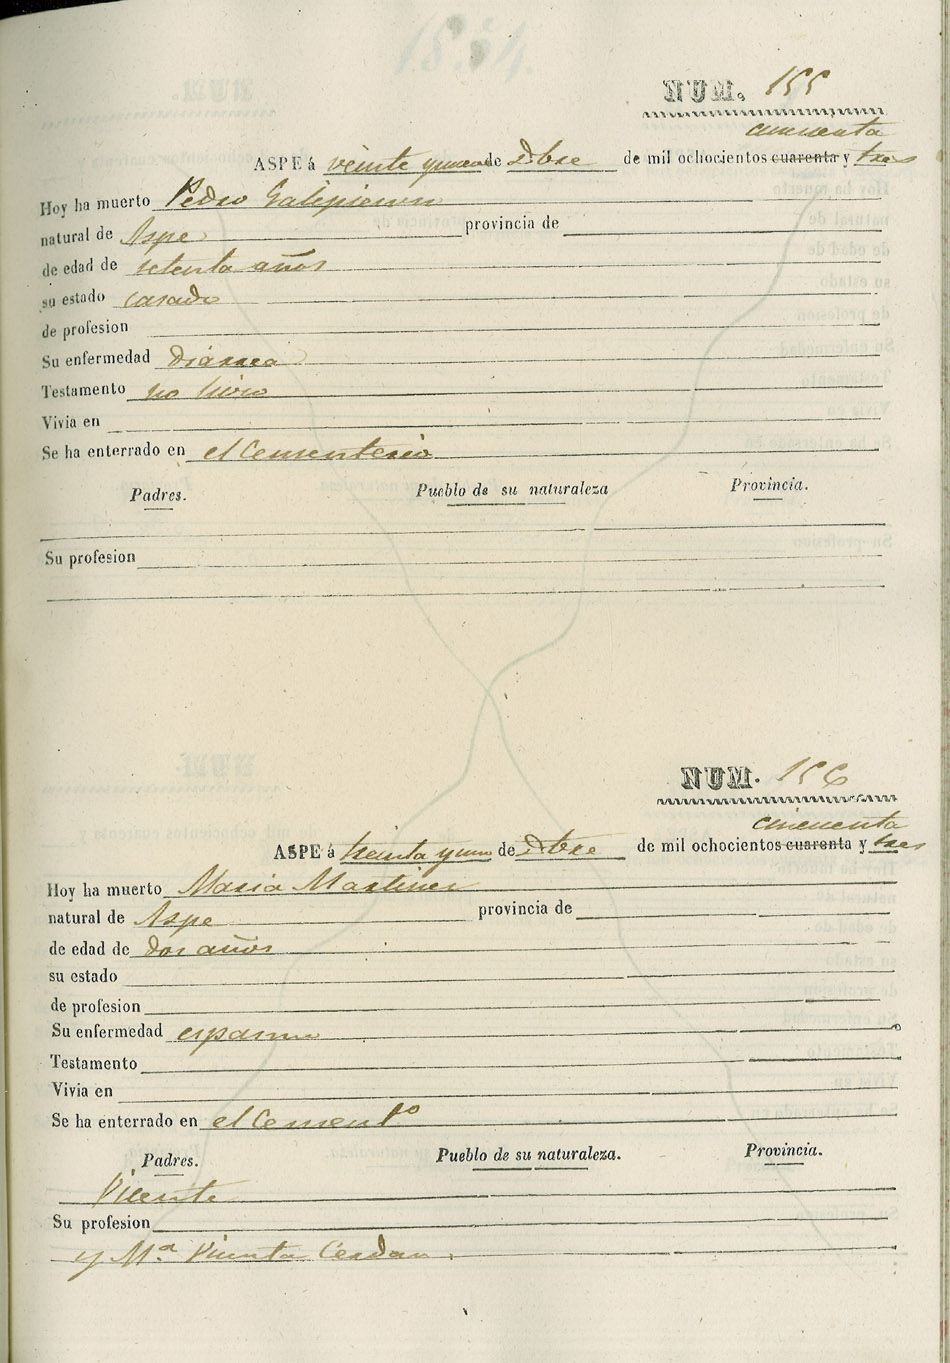 1854.
NUM. 155
cincuenta
ASPE á veinte y nueve de Dbre de mil ochocientos cuarenta y tres
Hoy ha muerto Pedro Galipienso
natural de Aspe provincia de
de edad de setenta años
su estado casado
de profesion
Su enfermedad diarrea
Testamento no hizo
Vivia en
Se ha enterrado en el Cementerio
Padres. Pueblo de su naturaleza Provincia.
Su profesion
NUM. 156
cincuenta
ASPE á treinta y uno de Dbre de mil ochocientos cuarenta y tres
Hoy ha muerto Maria Martinez
natural de Aspe provincia de
de edad de dos años
su estado
de profesion
Su enfermedad espasmo
Testamento
Vivia en
Se ha enterrado en el Cementº
Padres. Pueblo de su naturaleza. Provincia.
Vicente
Su profesion
y Mª Vicenta Cerdan